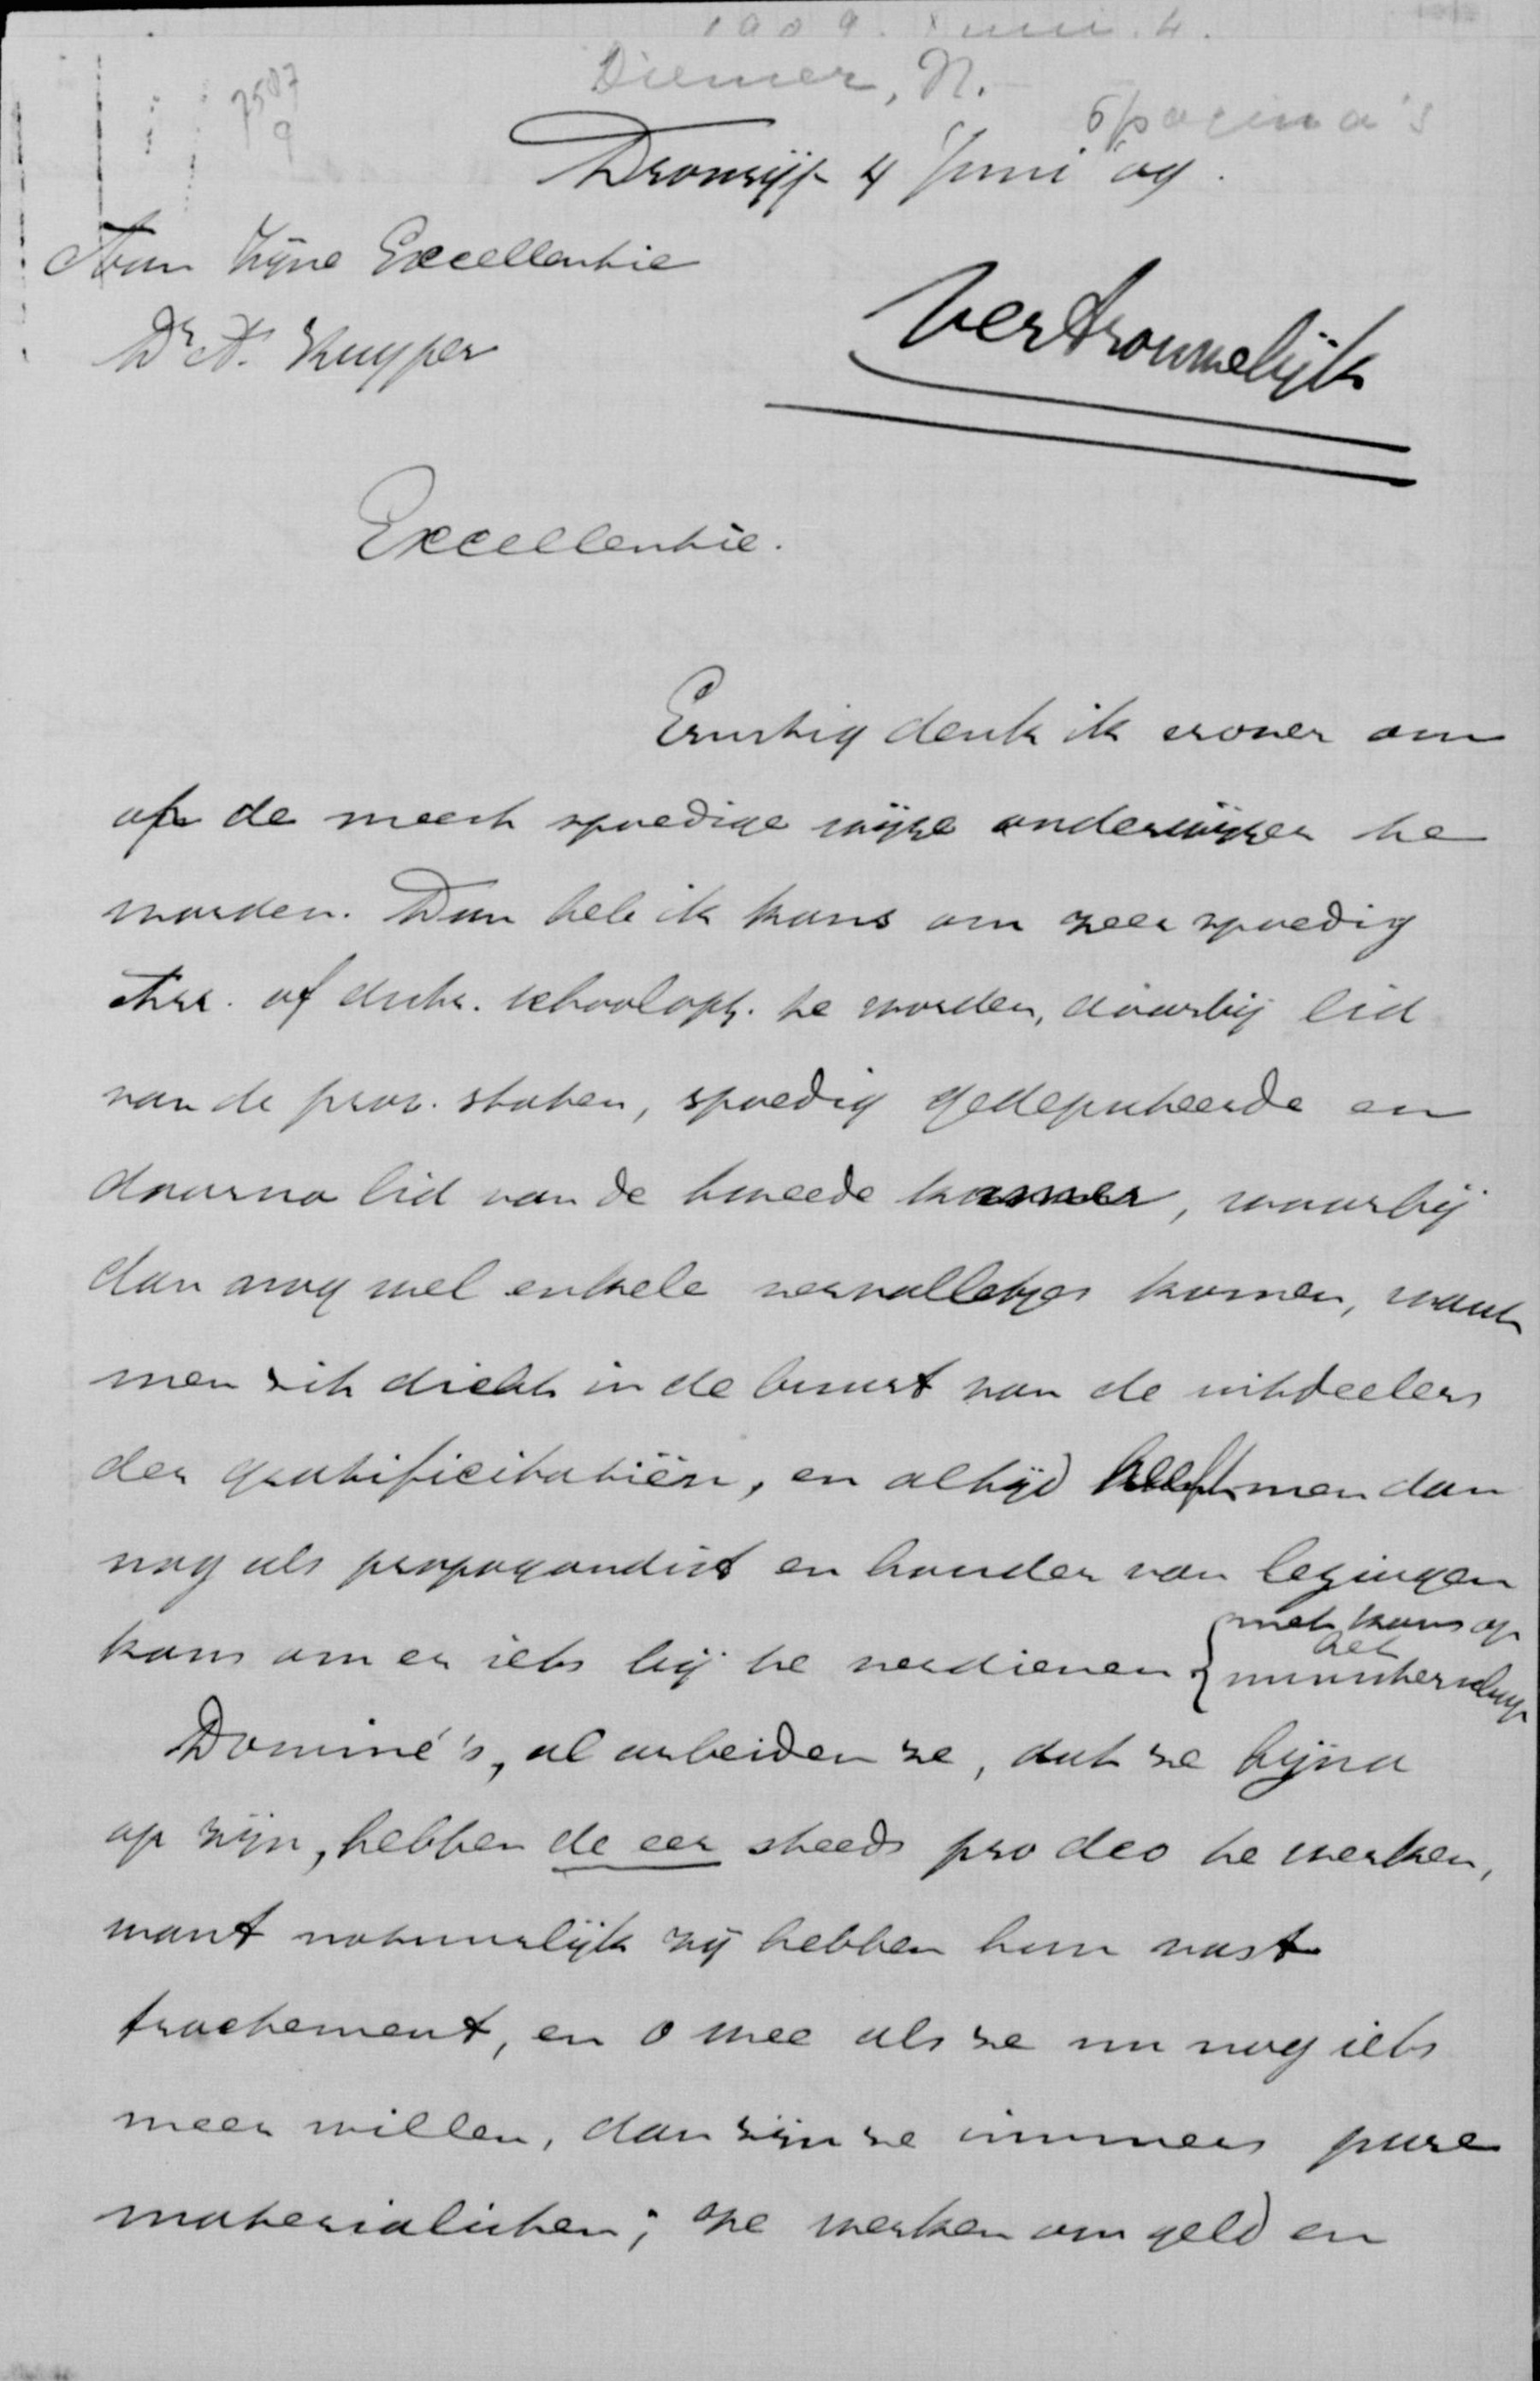 1909. Juni. 4.
Diemer, N.
6 pagina's
7507
9
Dronrijp 4 Juni 09.
Aan Zijne Excellentie
Dr A. Kuyper
Vertrouwelijk
Excellentie.
Ernstig denk ik erover om
op de meest spoedige wijze onderwijzer te
worden. Dan heb ik kans om zeer spoedig
Arr. of distr. schoolopz. te worden, daarbij lid
van de prov. staten, spoedig gedeputeerde en
daarna lid van de tweede kamer, waarbij
dan nog wel enkele vervalletjes komen, want
men zit dicht in de buurt van de uitdeelers
der gratificitatiën, en altijd heeft men dan
nog als propagandist en houder van lezingen
kans om er iets bij te verdienen {met kans op
het
ministerschap
Dominé's, al arbeiden ze, dat ze bijna
op zijn, hebben de eer steeds pro deo te werken,
want natuurlijk zij hebben hun vast
tractement, en o wee als ze nu nog iets
meer willen, dan zijn ze immers pure
materialisten; ze werken om geld en